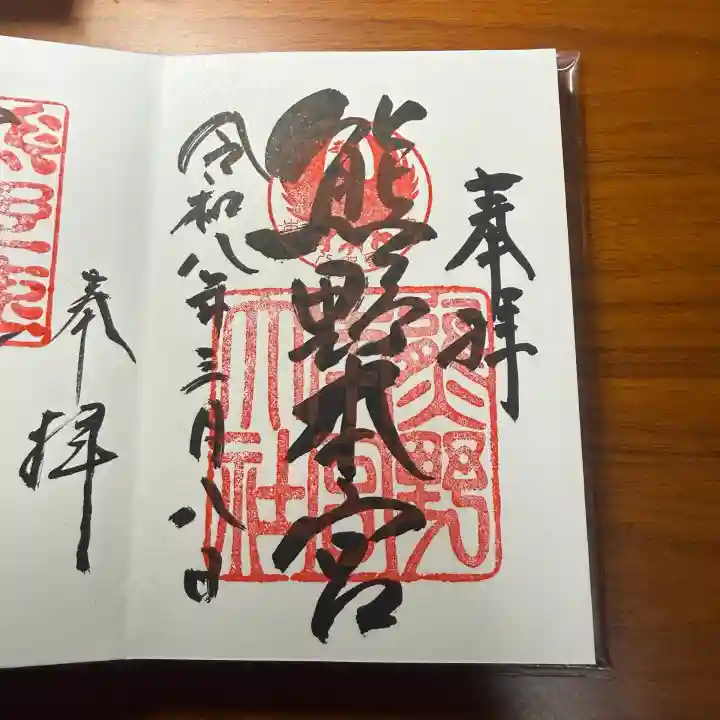 奉拝
熊野本宮
令和八年三月八日
熊野
本宮
大社
奉拝